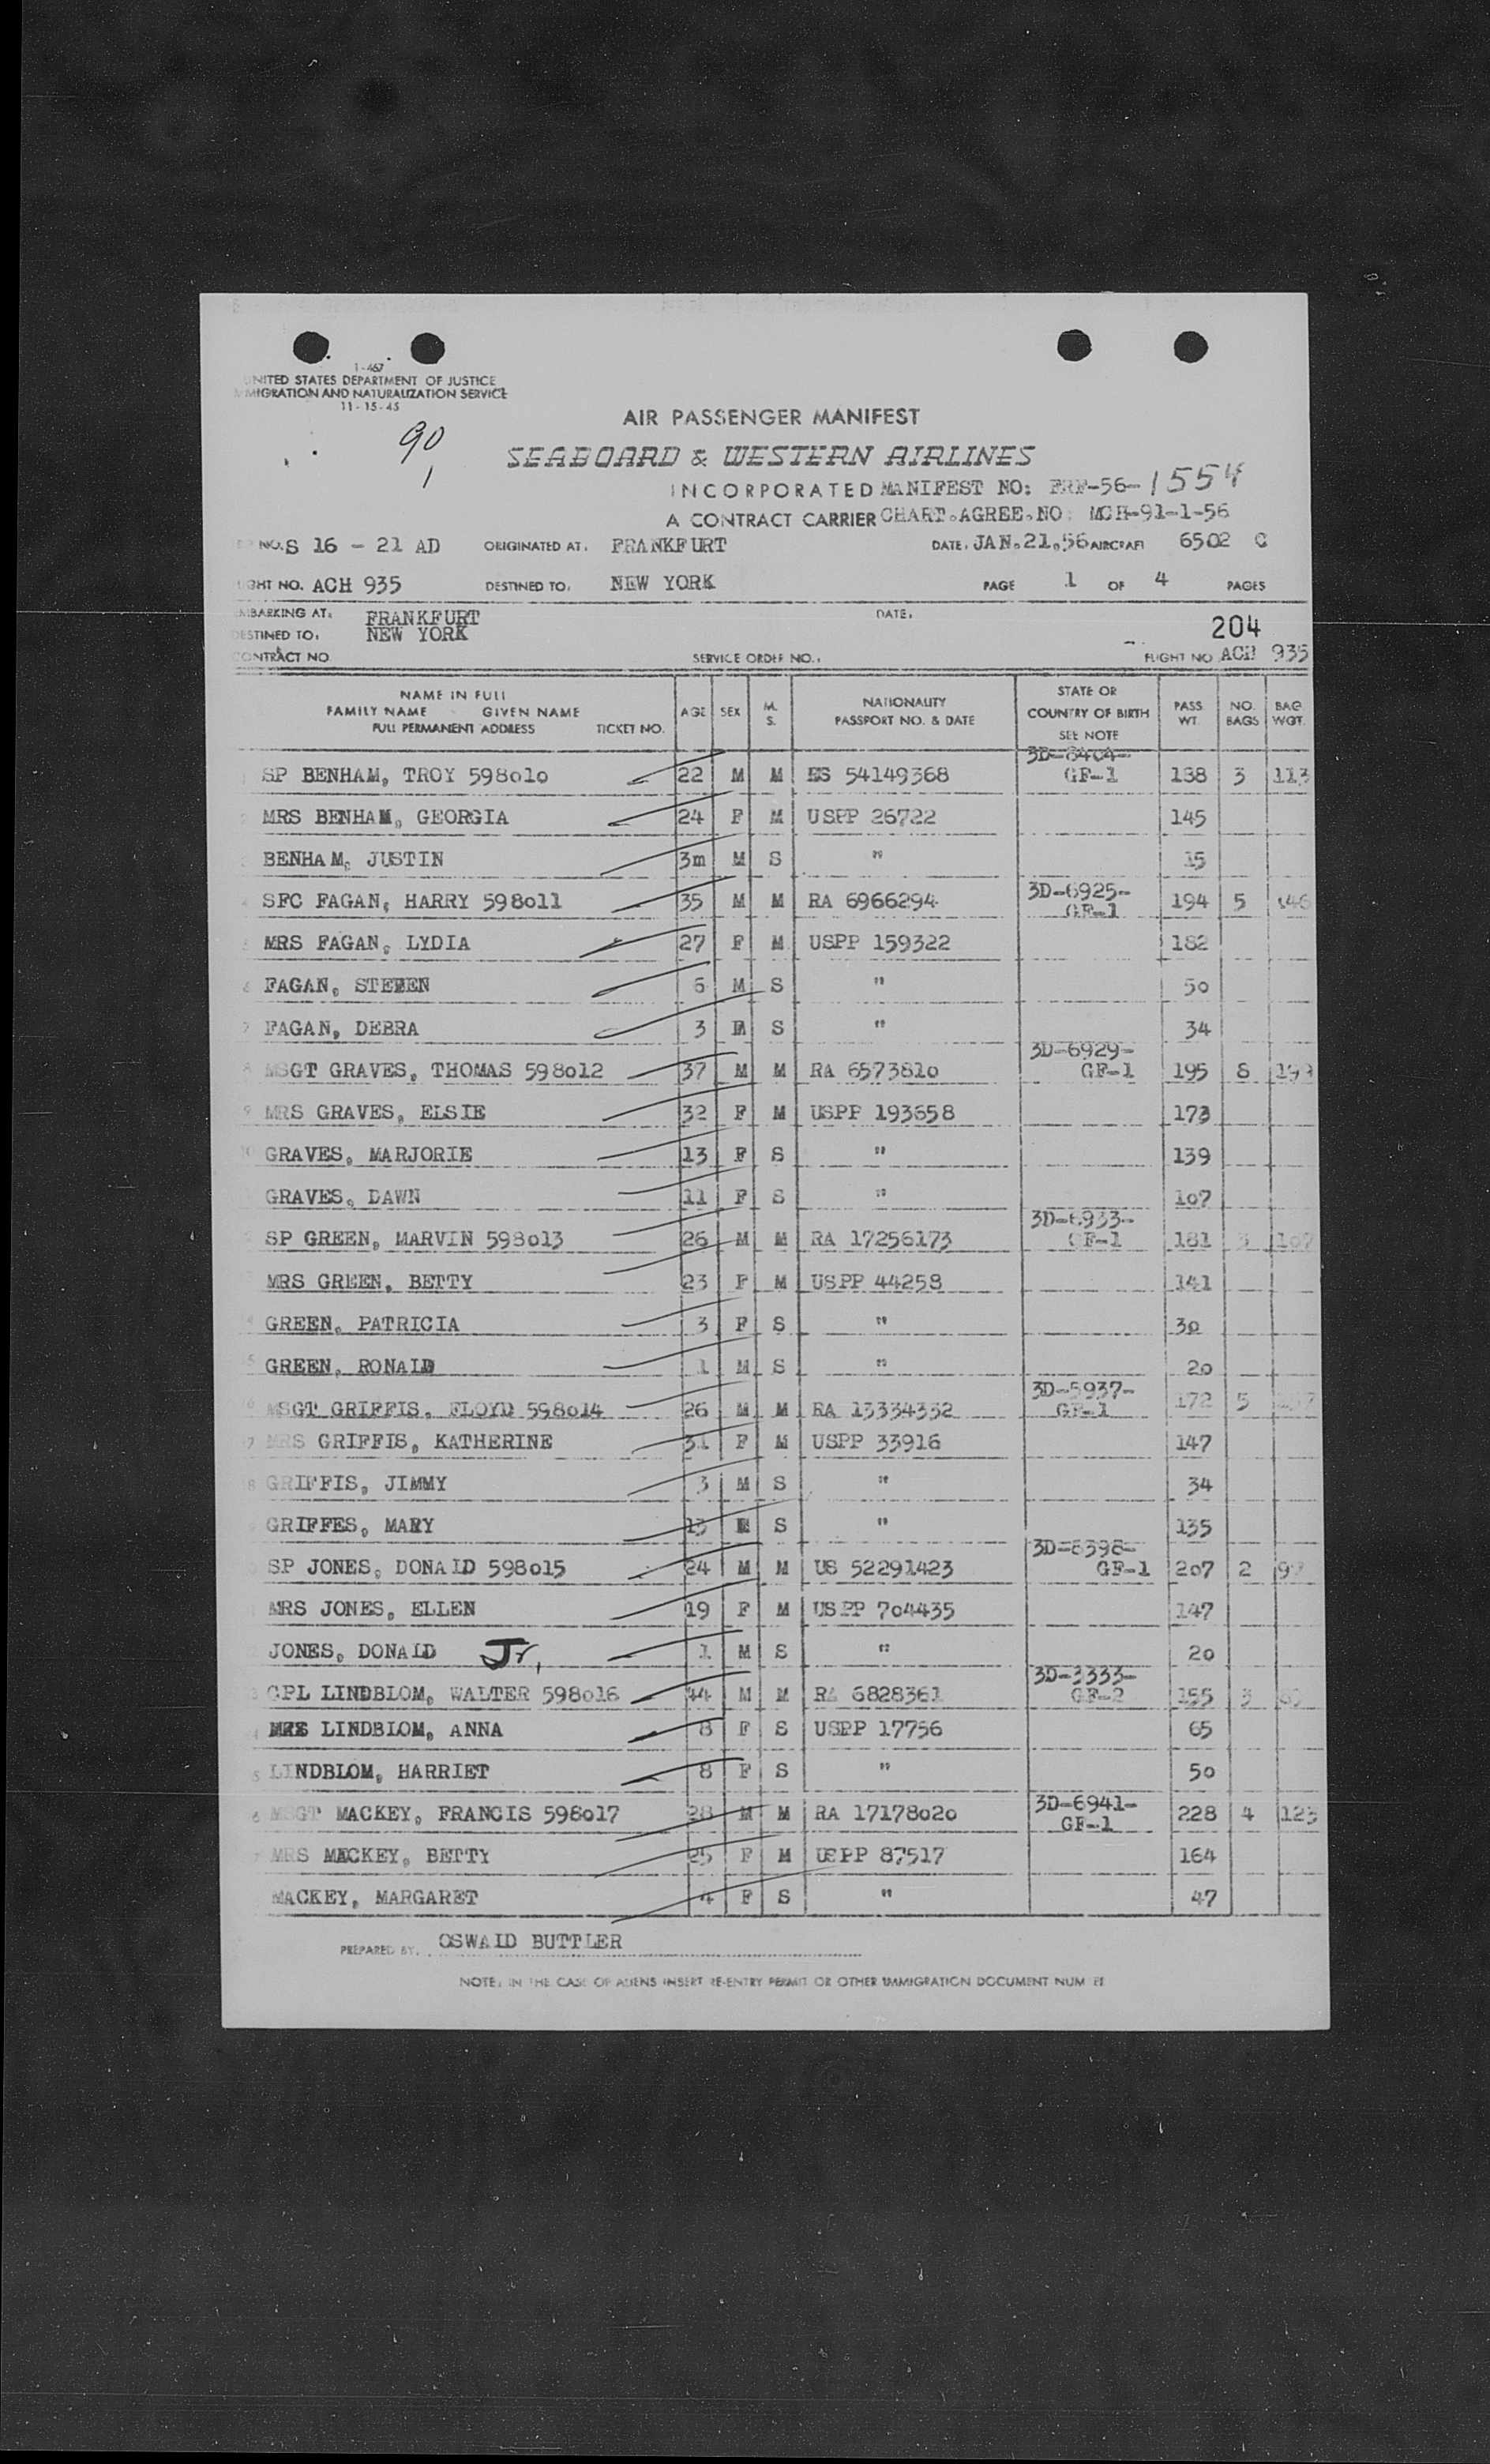 1-467
UNITED STATES DEPARTMENT OF JUSTICE
IMMIGRATION AND NATURALIZATION SERVICE
11-15-45
90
1
AIR PASSENGER MANIFEST
SEABOARD & WESTERN AIRLINES
INCORPORATED MANIFEST NO: FRF-56-1554
A CONTRACT CARRIER CHART.AGREE.NO: MCH-91-1-56
NO. S 16 - 21 AD ORIGINATED AT. FRANKFURT DATE. JAN.21.56 AIRCRAFT 6502 C
FLIGHT NO. ACH 935 DESTINED TO. NEW YORK PAGE 1 OF 4 PAGES
EMBARKING AT: FRANKFURT DATE.
DESTINED TO: NEW YORK 204
CONTRACT NO. SERVICE ORDER NO. FLIGHT NO ACH 935
NAME IN FULL FAMILY NAME GIVEN NAME FULL PERMANENT ADDRESS TICKET NO. AGE SEX M. S. NATIONALITY PASSPORT NO. & DATE STATE OR COUNTRY OF BIRTH SEE NOTE PASS. WT. NO. BAGS BAG WGT.
SP BENHAM, TROY 598010 22 M M ES 54149368 GF-1 138 3 113
MRS BENHAM, GEORGIA 24 F M USPP 26722 145
BENHAM, JUSTIN 3m M S " 15
SFC FAGAN, HARRY 598011 35 M M RA 6966294 3D-6925-GF-1 194 5 146
MRS FAGAN, LYDIA 27 F M USPP 159322 182
FAGAN, STEVEN 6 M S " 50
FAGAN, DEBRA 3 F S " 34
MSGT GRAVES, THOMAS 598012 37 M M RA 6573810 3D-6929-GF-1 195 8
MRS GRAVES, ELSIE 32 F M USPP 193658 173
GRAVES, MARJORIE 13 F S " 139
GRAVES, DAWN 11 F S " 107
SP GREEN, MARVIN 598013 26 M M RA 17256173 3D-6933-GF-1 181 3 107
MRS GREEN, BETTY 23 F M USPP 44258 141
GREEN, PATRICIA 3 F S " 30
GREEN, RONALD 1 M S " 20
MSGT GRIFFIS, FLOYD 598014 26 M M RA 13334332 3D-5937-GF-1 172 5
MRS GRIFFIS, KATHERINE 31 F M USPP 33916 147
GRIFFIS, JIMMY 3 M S " 34
GRIFFES, MARY 13 S " 135
SP JONES, DONALD 598015 24 M M US 52291423 GF-1 207 2
MRS JONES, ELLEN 19 F M USPP 704435 147
JONES, DONALD Jr, 1 M S " 20
CPL LINDBLOM, WALTER 598016 44 M M RA 6828361 3D-3333-GF-2 155 3
LINDBLOM, ANNA 8 F S USPP 17756 65
LINDBLOM, HARRIET 8 F S " 50
MSGT MACKEY, FRANCIS 598017 28 M M RA 17178020 3D-6941-GF-1 228 4 123
MRS MACKEY, BETTY 25 F M USPP 87517 164
MACKEY, MARGARET 4 F S " 47
PREPARED BY. OSWALD BUTTLER
NOTE: IN THE CASE OF ALIENS INSERT RE-ENTRY PERMIT OR OTHER IMMIGRATION DOCUMENT NUMBER